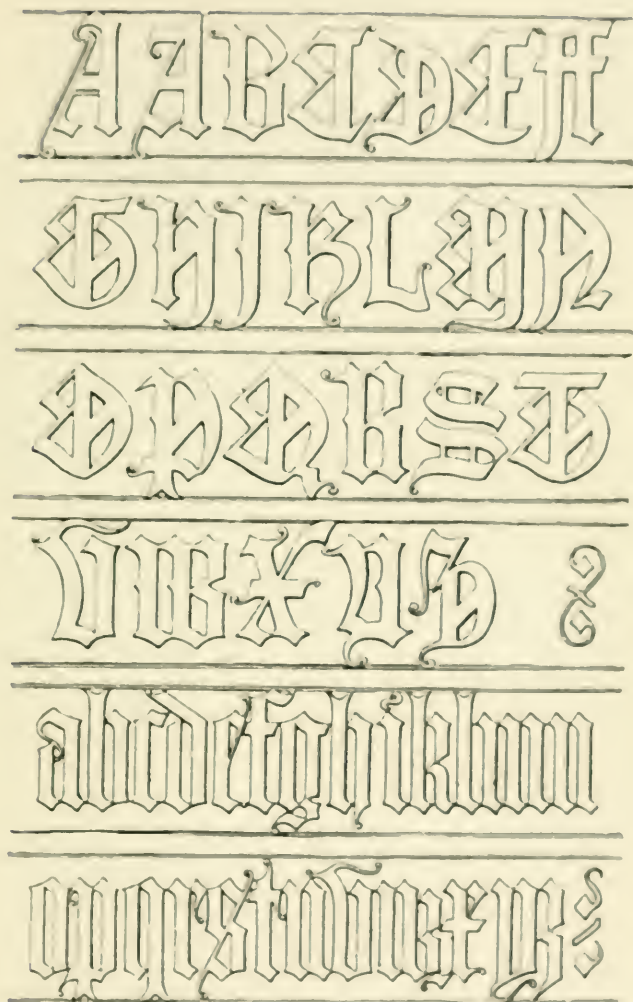 AABCDEF
GHIKLMN
OPQRST
VWXYZ &
abcdefghiklmn
opqrstuvwxyz